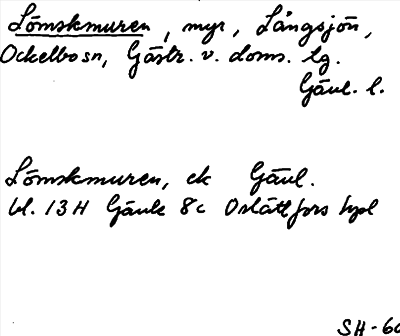 Lömskmuren, myr, Långsjön,
Ockelbo sn, Gästr. v. doms. tg.
Gävl. l.
Lömskmuren, ek Gävl.
bl. 13 H Gävle 8c Oslättfors
SH-60